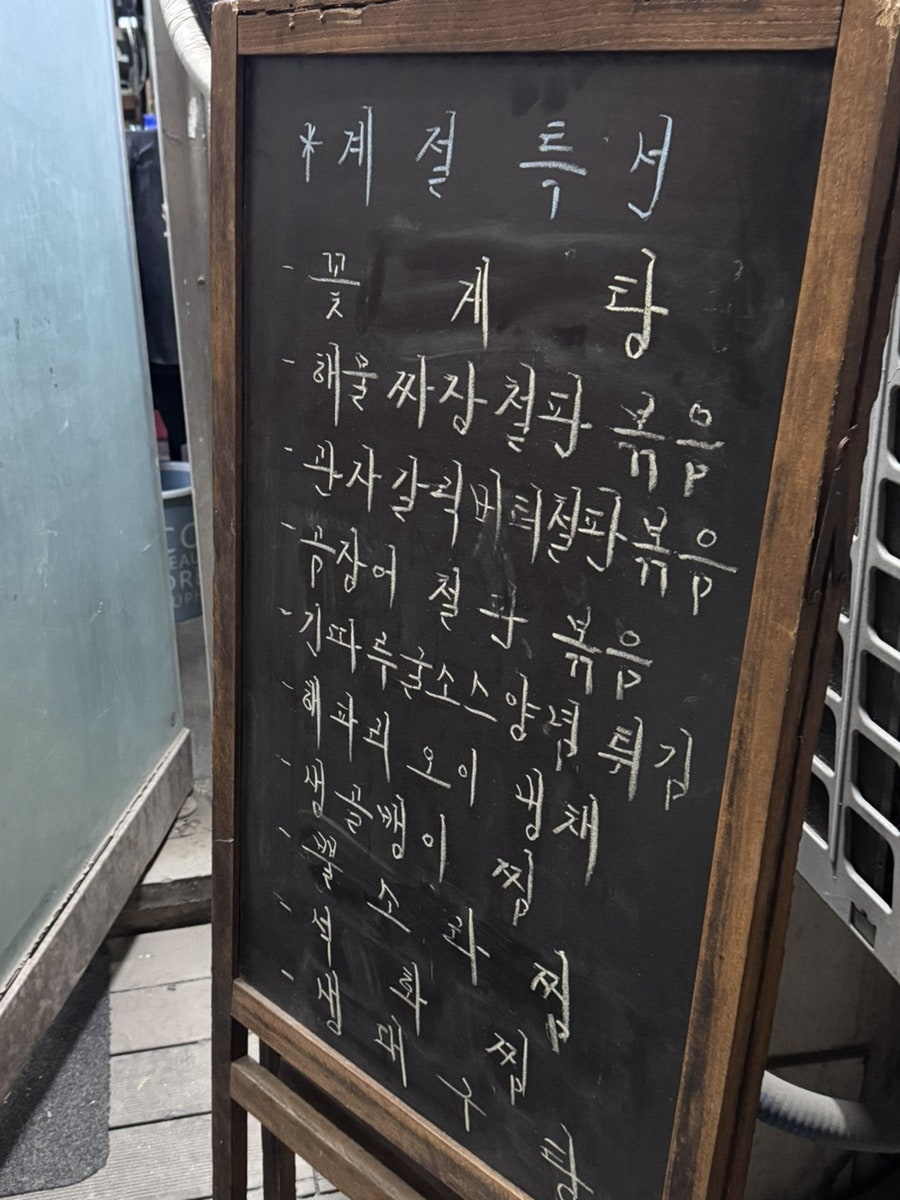 *계절특선
- 꽃게탕
- 해물짜장철판볶음
- 관자갈릭버터철판볶음
- 곰장어철판볶음
- 긴따루굴소스양념튀김
- 해파리오이냉채
- 생골뱅이찜
- 뿔소라찜
- 석화찜
- 생대구탕
CO